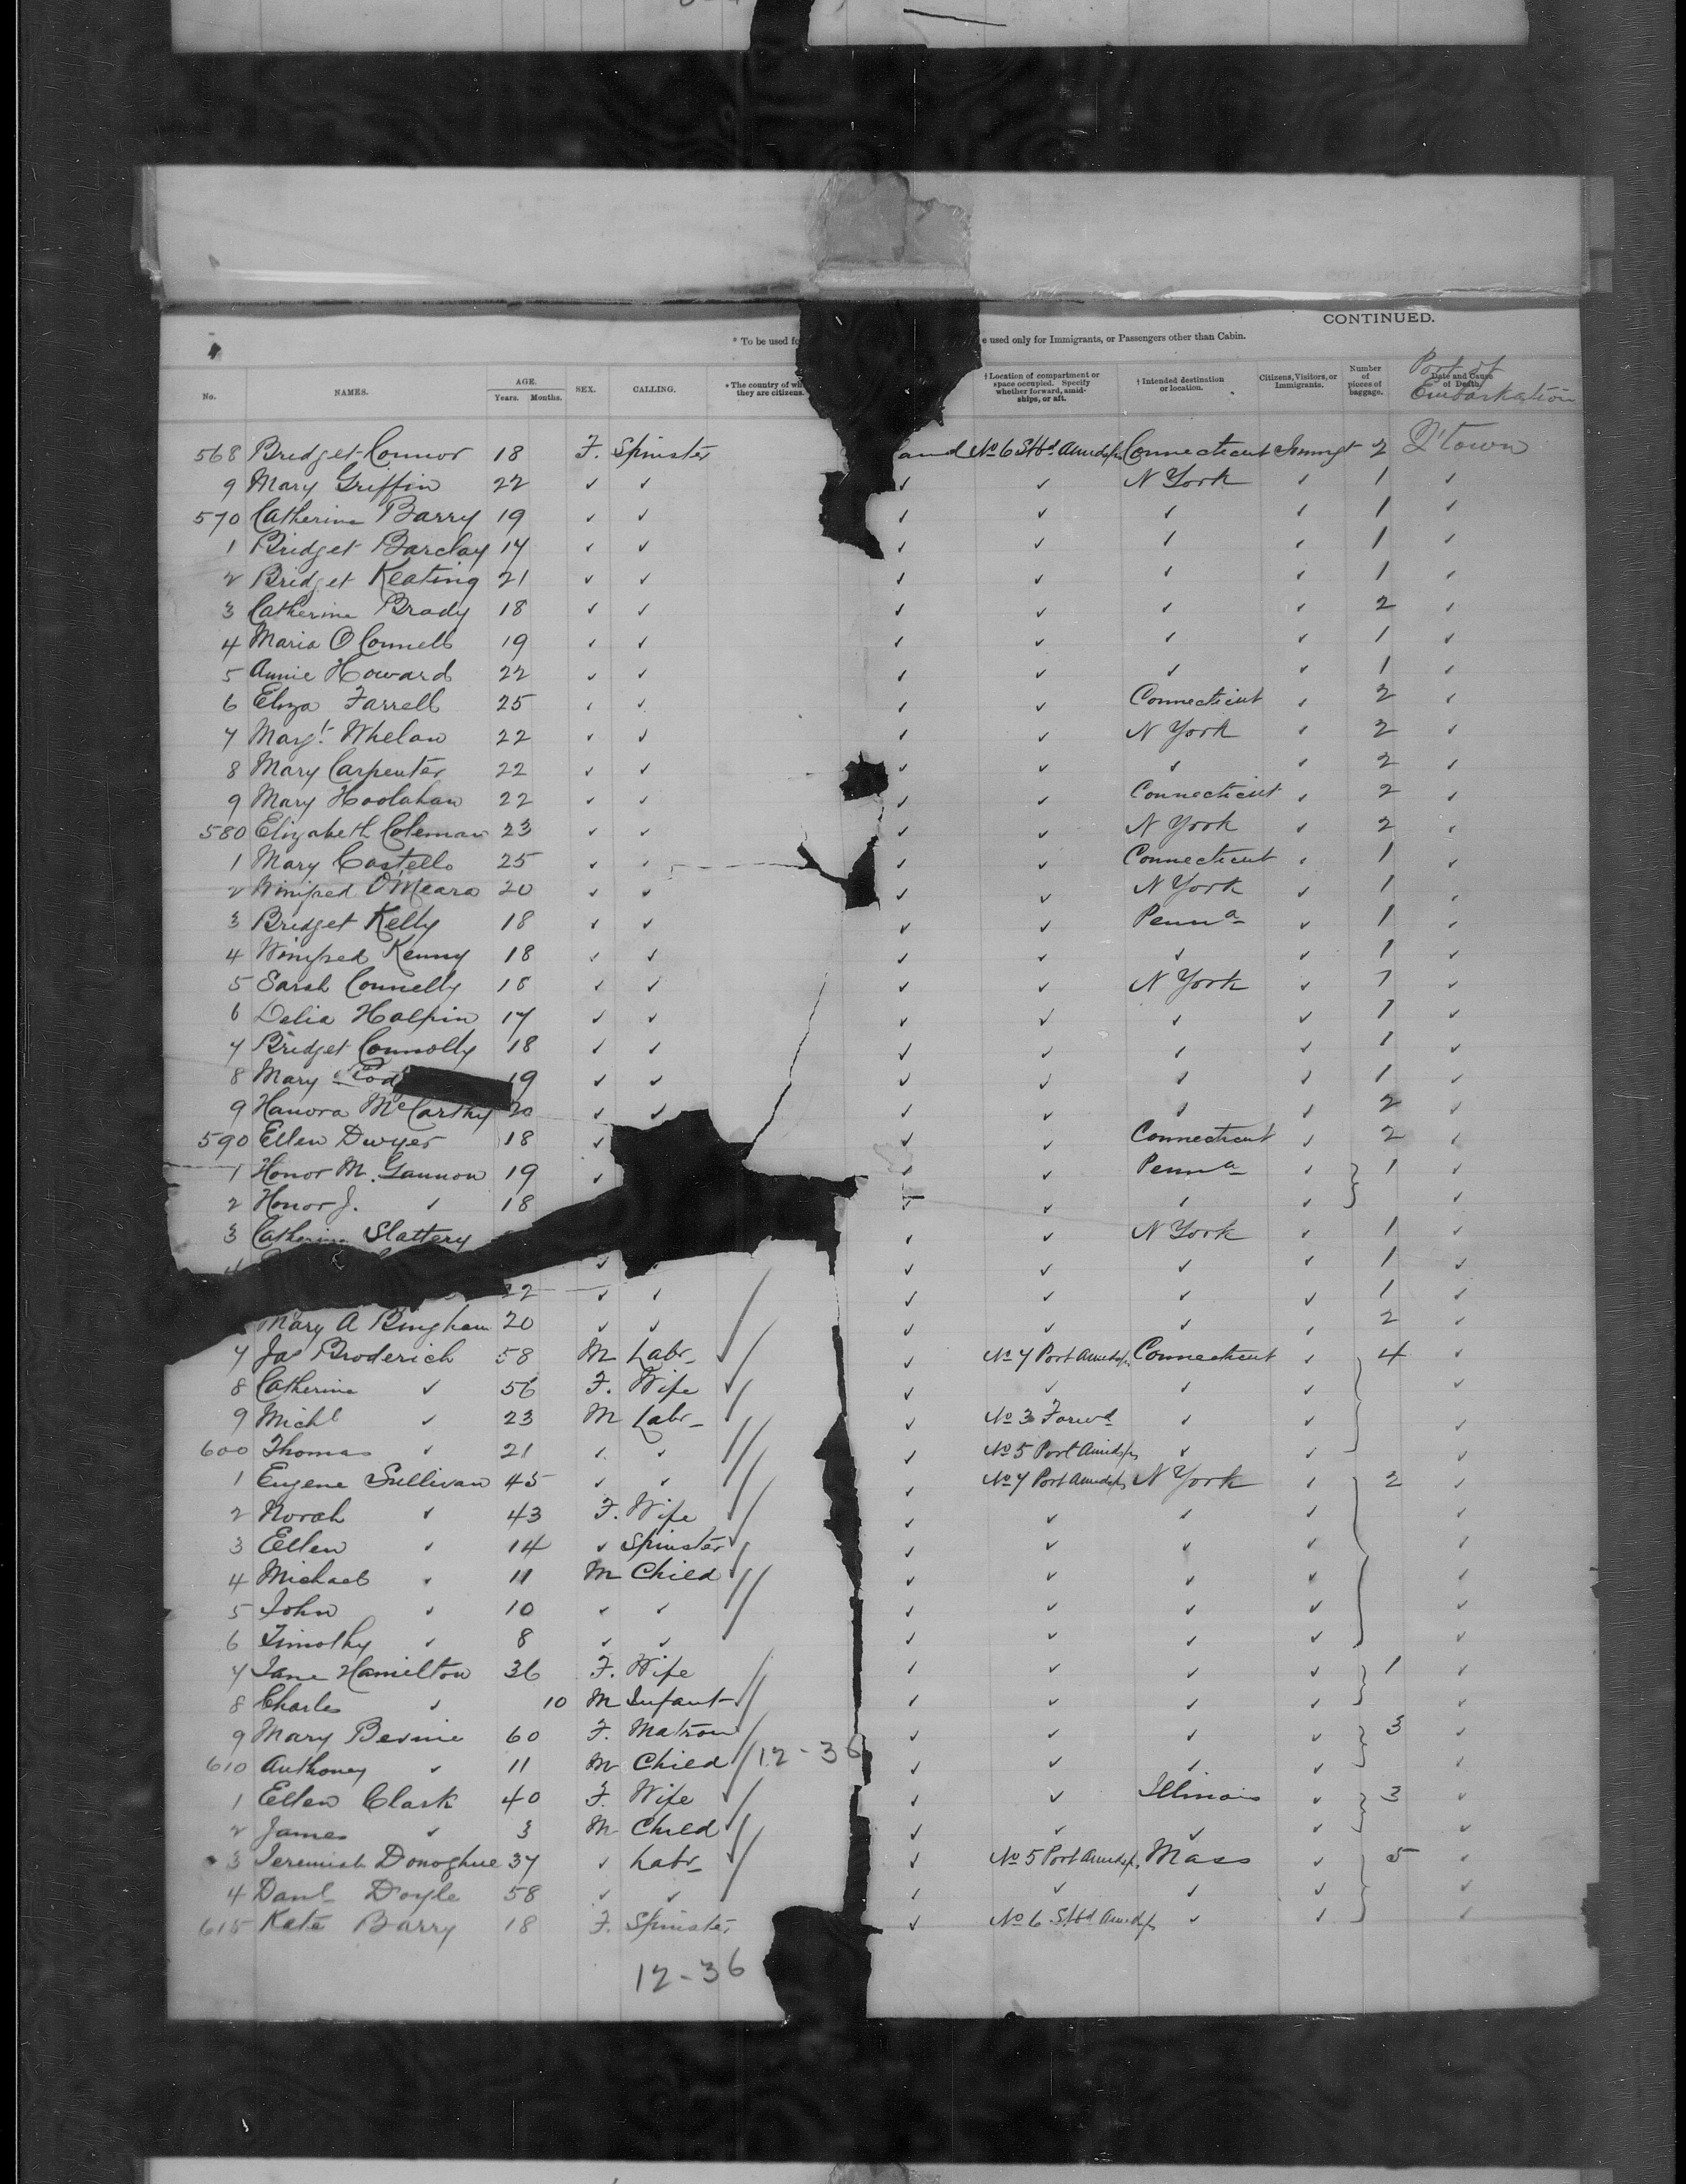 CONTINUED.
* To be used fo e used only for Immigrants, or Passengers other than Cabin.
No. NAMES. AGE. Years. Months. SEX. CALLING. * The country of wh they are citizens. † Location of compartment or space occupied. Specify whether forward, amidships, or aft. † Intended destination or location. Citizens, Visitors, or Immigrants. Number of pieces of baggage. Date and Cause of Death. Port of Embarkation
568 Bridget Connor 18 F. Spinster land No 6 Stbd Amidsps Connecticut Immgt 2 Q'town
9 Mary Griffin 22 ✓ ✓ ✓ ✓ N York ✓ 1 ✓
570 Catherine Barry 19 ✓ ✓ ✓ ✓ ✓ ✓ 1 ✓
1 Bridget Barclay 17 ✓ ✓ ✓ ✓ ✓ ✓ 1 ✓
2 Bridget Keating 21 ✓ ✓ ✓ ✓ ✓ ✓ 1 ✓
3 Catherine Brady 18 ✓ ✓ ✓ ✓ ✓ ✓ 2 ✓
4 Maria O Connell 19 ✓ ✓ ✓ ✓ ✓ ✓ 1 ✓
5 Annie Howard 22 ✓ ✓ ✓ ✓ ✓ ✓ 1 ✓
6 Eliza Farrell 25 ✓ ✓ ✓ ✓ Connecticut ✓ 2 ✓
7 Margt. Whelan 22 ✓ ✓ ✓ ✓ N York ✓ 2 ✓
8 Mary Carpenter 22 ✓ ✓ ✓ ✓ ✓ ✓ 2 ✓
9 Mary Hoolahan 22 ✓ ✓ ✓ ✓ Connecticut ✓ 2 ✓
580 Elizabeth Coleman 23 ✓ ✓ ✓ ✓ N York ✓ 2 ✓
1 Mary Costello 25 ✓ ✓ ✓ ✓ Connecticut ✓ 1 ✓
2 Winifred O'Meara 20 ✓ ✓ ✓ ✓ N York ✓ 1 ✓
3 Bridget Kelly 18 ✓ ✓ ✓ ✓ Penna ✓ 1 ✓
4 Winifred Kenny 18 ✓ ✓ ✓ ✓ ✓ ✓ 1 ✓
5 Sarah Connelly 18 ✓ ✓ ✓ ✓ N York ✓ 1 ✓
6 Delia Halpin 17 ✓ ✓ ✓ ✓ ✓ ✓ 1 ✓
7 Bridget Connolly 18 ✓ ✓ ✓ ✓ ✓ ✓ 1 ✓
8 Mary 19 ✓ ✓ ✓ ✓ ✓ ✓ 1 ✓
9 Hanora McCarthy 20 ✓ ✓ ✓ ✓ ✓ ✓ 2 ✓
590 Ellen Dwyer 18 ✓ ✓ ✓ Connecticut ✓ 2 ✓
1 Honor M. Gannon 19 ✓ ✓ ✓ Penna ✓ 1 ✓
2 Honor J. ✓ 18 ✓ ✓ ✓ ✓ ✓
3 Catherine Slattery ✓ ✓ N York ✓ 1 ✓
4 ✓ ✓ ✓ ✓ ✓ 1 ✓
22 ✓ ✓ ✓ ✓ ✓ ✓ 1 ✓
Mary A Bingham 20 ✓ ✓ ✓ ✓ ✓ ✓ 2 ✓
7 Jas Broderick 58 M Labr ✓ No 7 Port Amidsps Connecticut ✓ 4 ✓
8 Catherine ✓ 56 F. Wife ✓ ✓ ✓ ✓ ✓
9 Michl ✓ 23 M Labr ✓ No 3 Forwd ✓ ✓ ✓
600 Thomas ✓ 21 ✓ ✓ ✓ No 5 Port Amidsps ✓ ✓ ✓
1 Eugene Sullivan 45 ✓ ✓ ✓ No 7 Port Amidsps N York ✓ 2 ✓
2 Norah ✓ 43 F. Wife ✓ ✓ ✓ ✓ ✓
3 Ellen ✓ 14 ✓ Spinster ✓ ✓ ✓ ✓ ✓
4 Michael ✓ 11 M Child ✓ ✓ ✓ ✓ ✓
5 John ✓ 10 ✓ ✓ ✓ ✓ ✓ ✓ ✓
6 Timothy ✓ 8 ✓ ✓ ✓ ✓ ✓ ✓ ✓
7 Jane Hamilton 36 F. Wife ✓ ✓ ✓ ✓ 1 ✓
8 Charles ✓ 10 M Infant ✓ ✓ ✓ ✓ ✓
9 Mary 60 F. Matron ✓ ✓ ✓ ✓ 3 ✓
610 Anthoney ✓ 11 M Child 12-36 ✓ ✓ ✓ ✓ ✓
1 Ellen Clark 40 F. Wife ✓ ✓ Illinois ✓ 3 ✓
2 James ✓ 3 M Child ✓ ✓ ✓ ✓ ✓
3 Jeremiah Donoghue 37 ✓ Labr ✓ No 5 Port Amidsps Mass ✓ 5 ✓
4 Danl Doyle 58 ✓ ✓ ✓ ✓ ✓ ✓ ✓
615 Kate Barry 18 F. Spinster ✓ No 6 Stbd Amidsps ✓ ✓ ✓
12-36